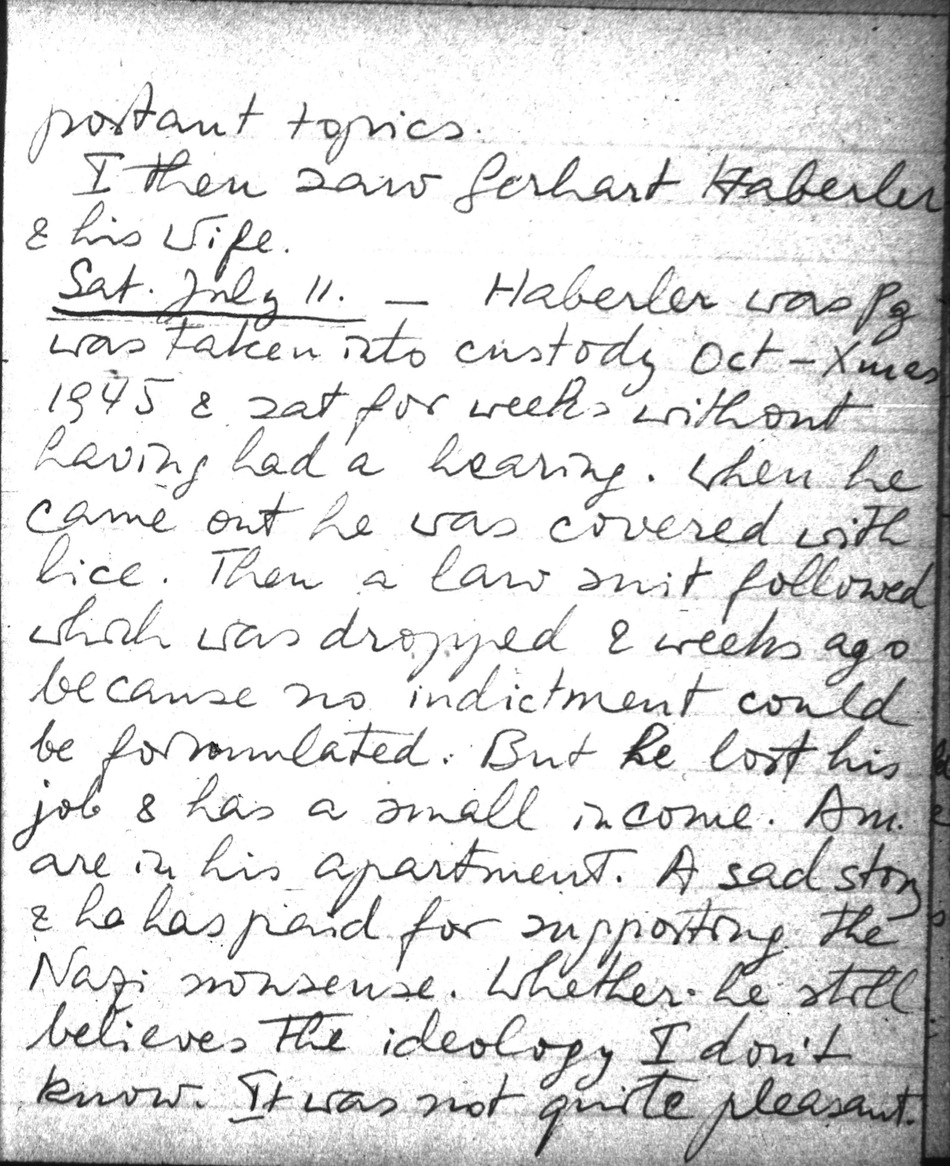 portant topics.
I then saw Gerhart Haberler
& his Wife.
Sat. July 11. — Haberler was Pg
was taken into custody Oct – Xmas
1945 & sat for weeks without
having had a hearing. When he
came out he was covered with
lice. Then a law suit followed
which was dropped 2 weeks ago
because no indictment could
be formulated. But he lost his
job & has a small income. Am.
are in his apartment. A sad story
& he has paid for supporting the
Nazi nonsense. Whether he still
believes the ideology I don't
know. It was not quite pleasant.